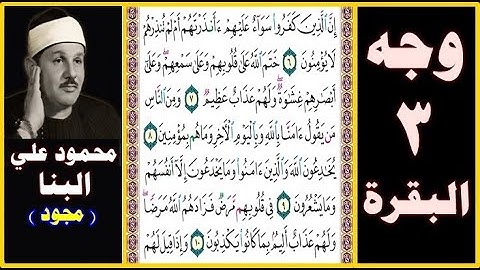 وجه
٣
البقرة
إِنَّ الَّذِينَ كَفَرُوا سَوَاءٌ عَلَيْهِمْ ءَأَنذَرْتَهُمْ أَمْ لَمْ تُنذِرْهُمْ
لَا يُؤْمِنُونَ ٦ خَتَمَ اللَّهُ عَلَىٰ قُلُوبِهِمْ وَعَلَىٰ سَمْعِهِمْ وَعَلَىٰ
أَبْصَارِهِمْ غِشَاوَةٌ وَلَهُمْ عَذَابٌ عَظِيمٌ ٧ وَمِنَ النَّاسِ
مَن يَقُولُ ءَامَنَّا بِاللَّهِ وَبِالْيَوْمِ الْآخِرِ وَمَا هُم بِمُؤْمِنِينَ ٨
يُخَادِعُونَ اللَّهَ وَالَّذِينَ ءَامَنُوا وَمَا يَخْدَعُونَ إِلَّا أَنفُسَهُمْ
وَمَا يَشْعُرُونَ ٩ فِي قُلُوبِهِم مَّرَضٌ فَزَادَهُمُ اللَّهُ مَرَضًا
وَلَهُمْ عَذَابٌ أَلِيمٌ بِمَا كَانُوا يَكْذِبُونَ ١٠ وَإِذَا قِيلَ لَهُمْ
محمود علي
البنا
( مجود )